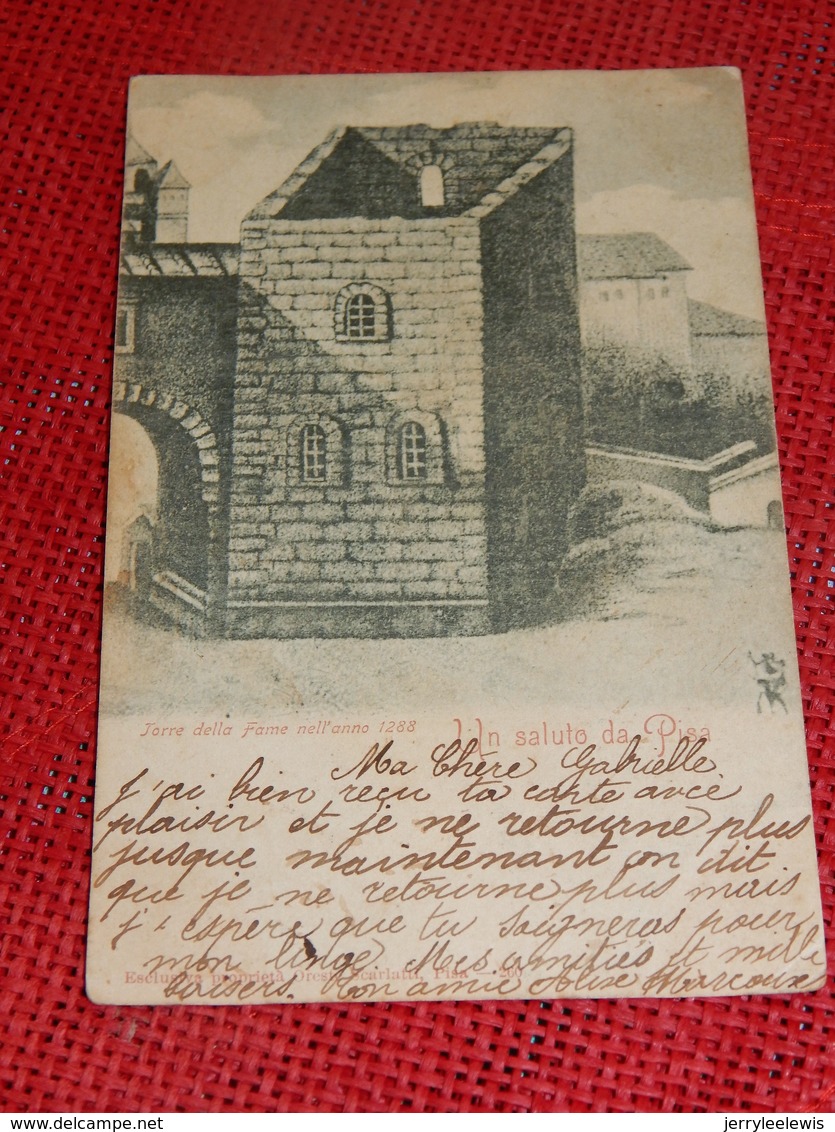 Torre della Fame nell'anno 1288
Un saluto da Pisa
Ma Chère Gabrielle
J'ai bien reçu ta carte avec
plaisir et je ne retourne plus
jusque maintenant on dit
que je ne retourne plus mais
j'espère que tu soigneras pour
mon linge. Mes amitiés et mille
baisers. Ton amie Alix Marcoux
Esclusiva proprietà Oreste Scarlatti, Pisa - 260
delcampe.net
jerryleelewis